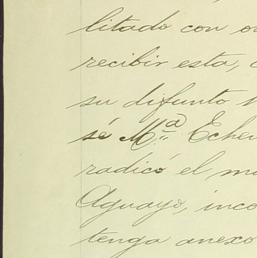 litado con
recibir esta,
su difunto
sé M.ª Eche
radicó el
Aguayo, inco
tenga anexo